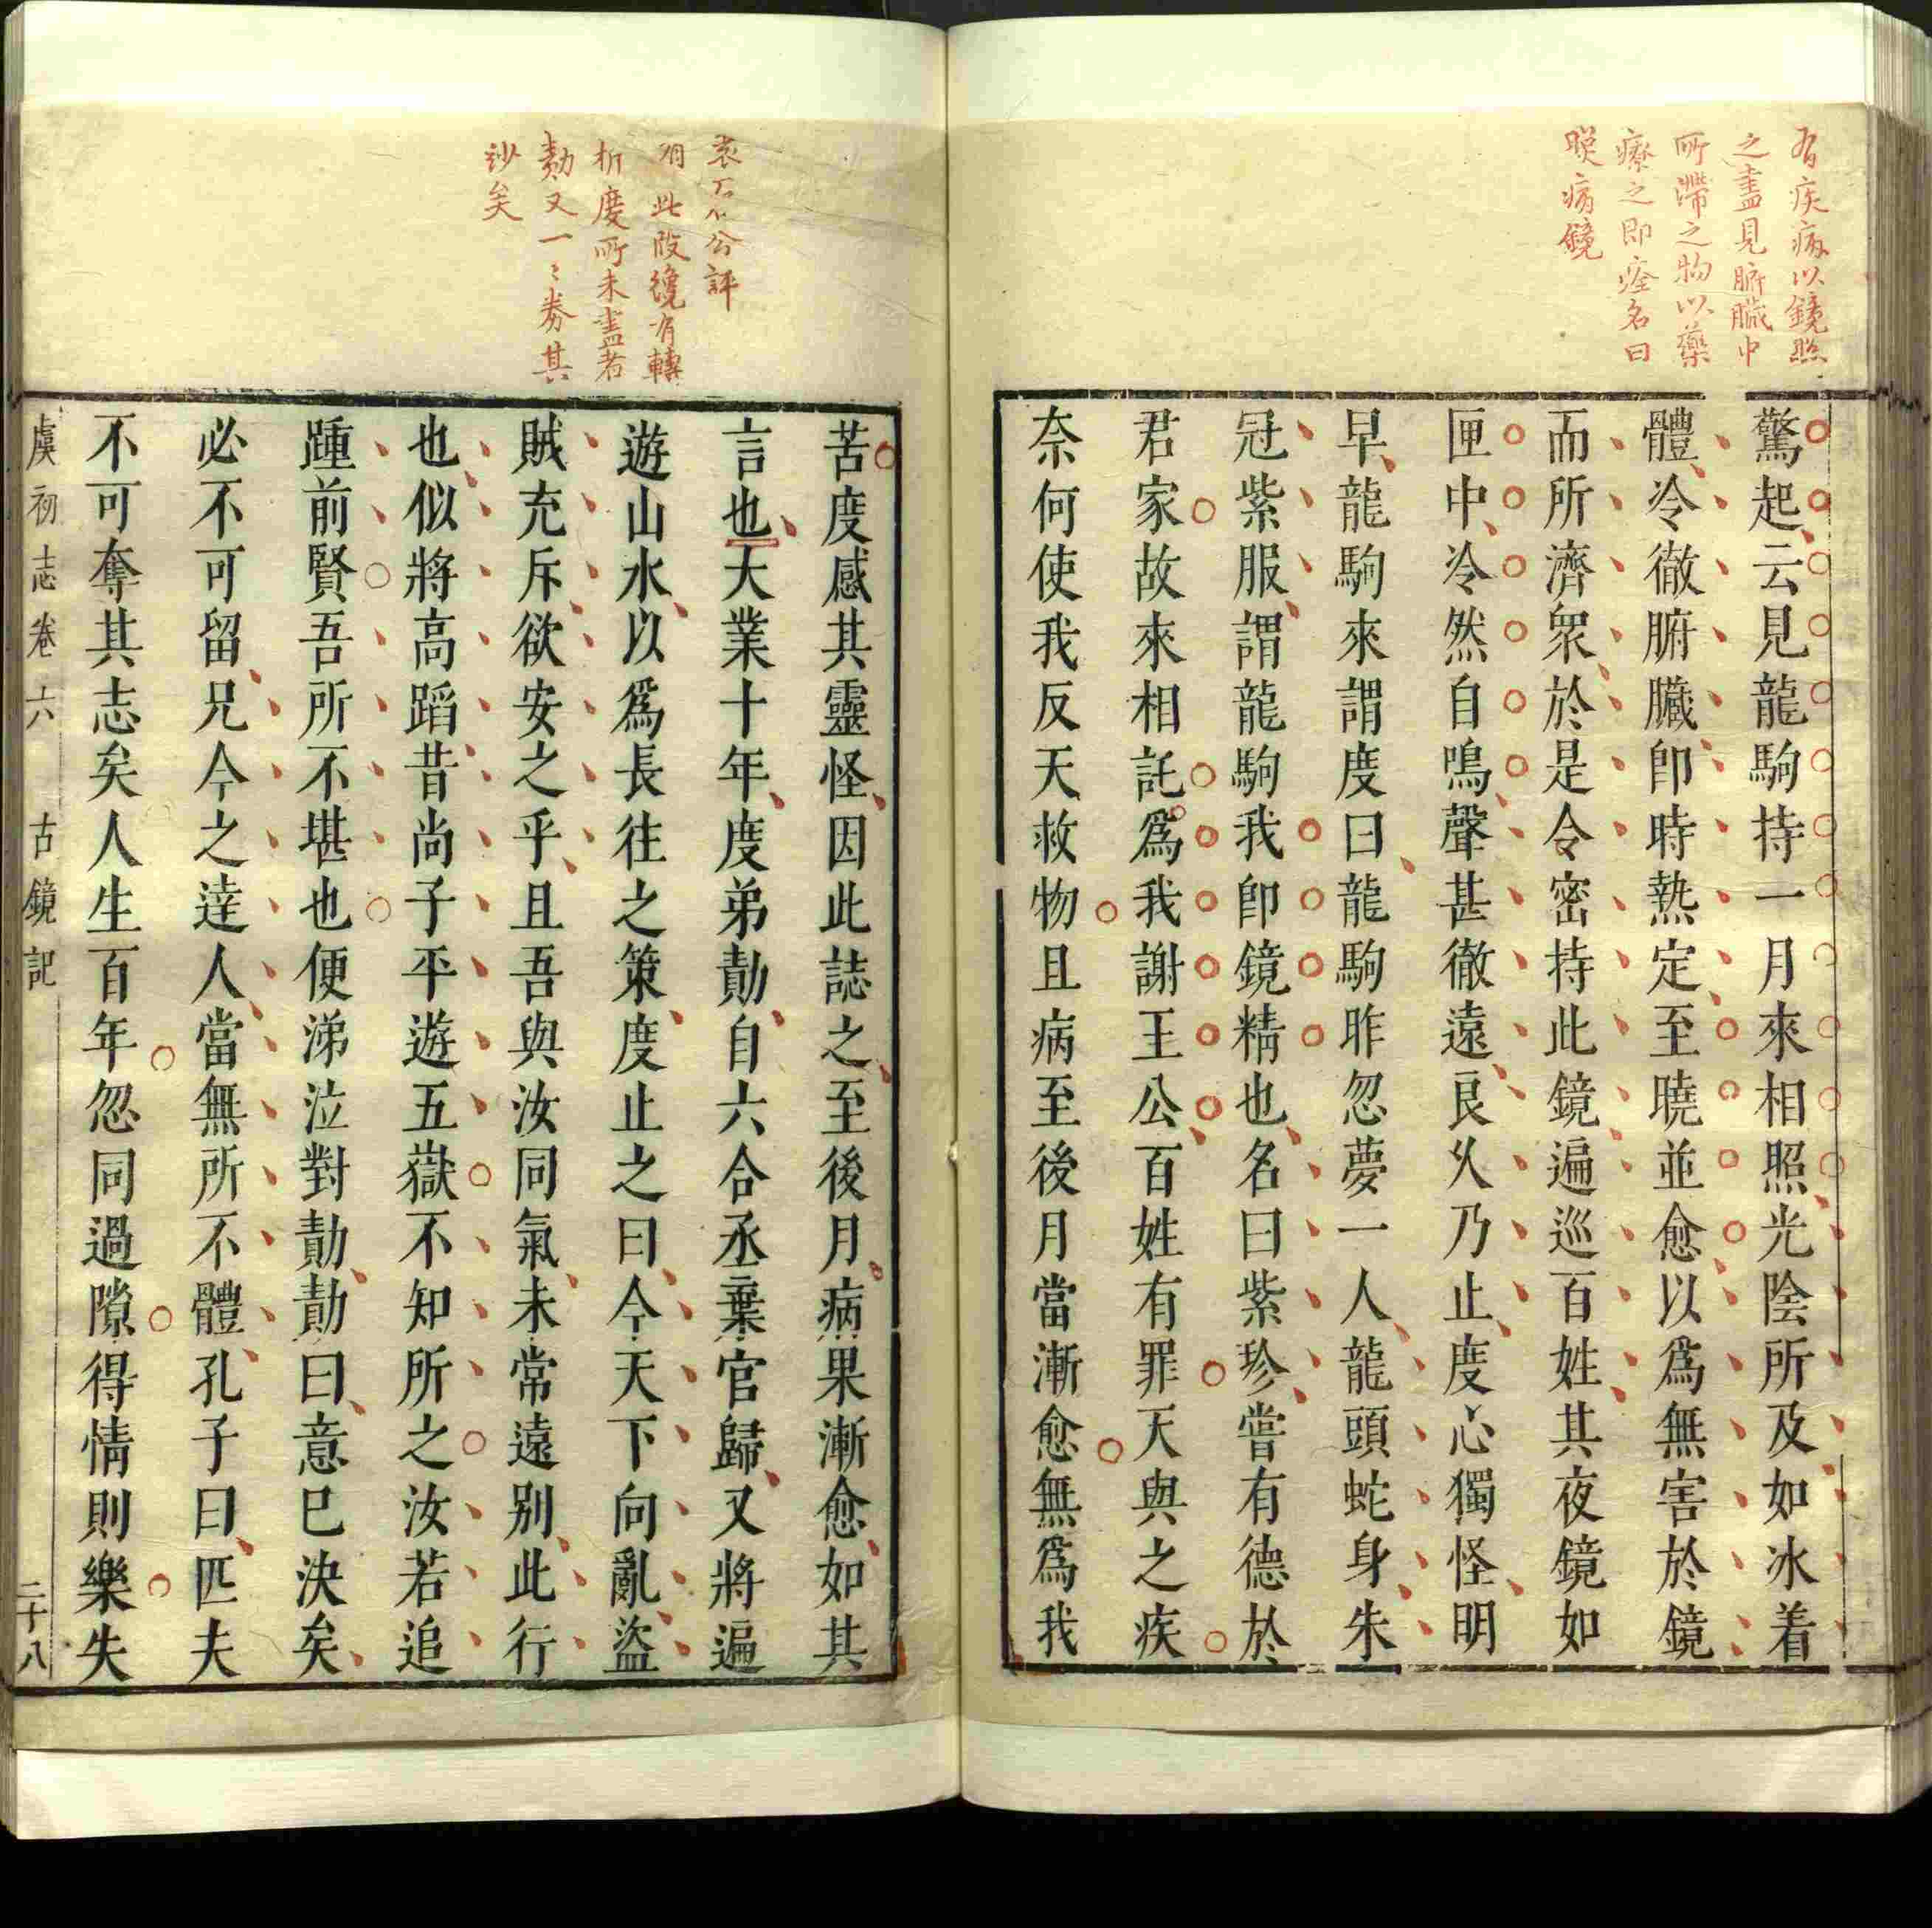 有疾病以鏡照
之盡見腑臟中
所滯之物以藥
療之即痊名曰
照病鏡
驚起云見龍駒持一月來相照光陰所及如冰着
體冷徹腑臟卽時熱定至曉並愈以爲無害於鏡
而所濟衆於是令密持此鏡遍巡百姓其夜鏡如
匣中冷然自鳴聲甚徹遠良乆乃止度心獨怪明
早龍駒來謂度曰龍駒昨忽夢一人龍頭蛇身朱
冠紫服謂龍駒我卽鏡精也名曰紫珍嘗有德於
君家故來相託爲我謝王公百姓有罪天與之疾
奈何使我反天救物且病至後月當漸愈無爲我
袁石公評
此段纔有轉
折度所未盡者
勣又一〻券其
玅矣
苦度感其靈怪因此誌之至後月病果漸愈如其
言也大業十年度弟勣自六合丞棄官歸又將遍
遊山水以爲長往之策度止之曰今天下向亂盜
賊充斥欲安之乎且吾與汝同氣未常遠别此行
也似將高蹈昔尚子平遊五嶽不知所之汝若追
踵前賢吾所不堪也便涕泣對勣勣曰意已決矣
必不可留兄今之逹人當無所不體孔子曰匹夫
不可奪其志矣人生百年忽同過隙得情則樂失
虞初志卷六 古鏡記 二十八